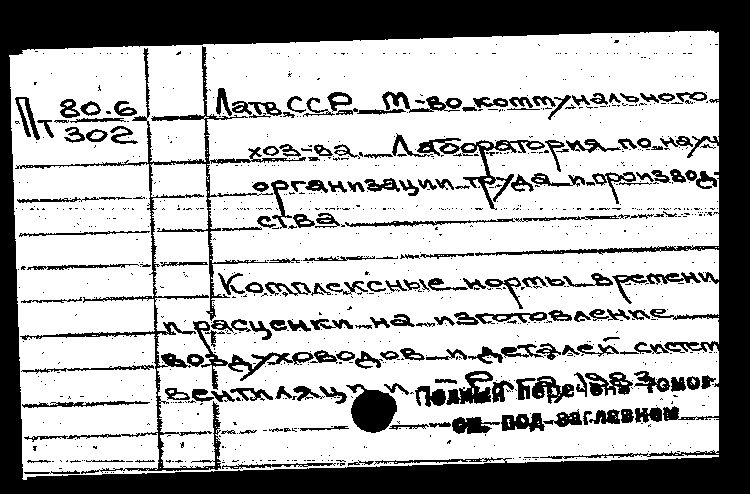 П 80.6
302
Латв.ССР. М-во коммунального
хоз-ва. Лаборатория по науч
организации труда и производ-
ства
Комплексные нормы времени
и расценки на изготовление
воздуховодов и деталей систем
вентиляции. - Рига, 1983
Полный перечень томов
см. под заглавием